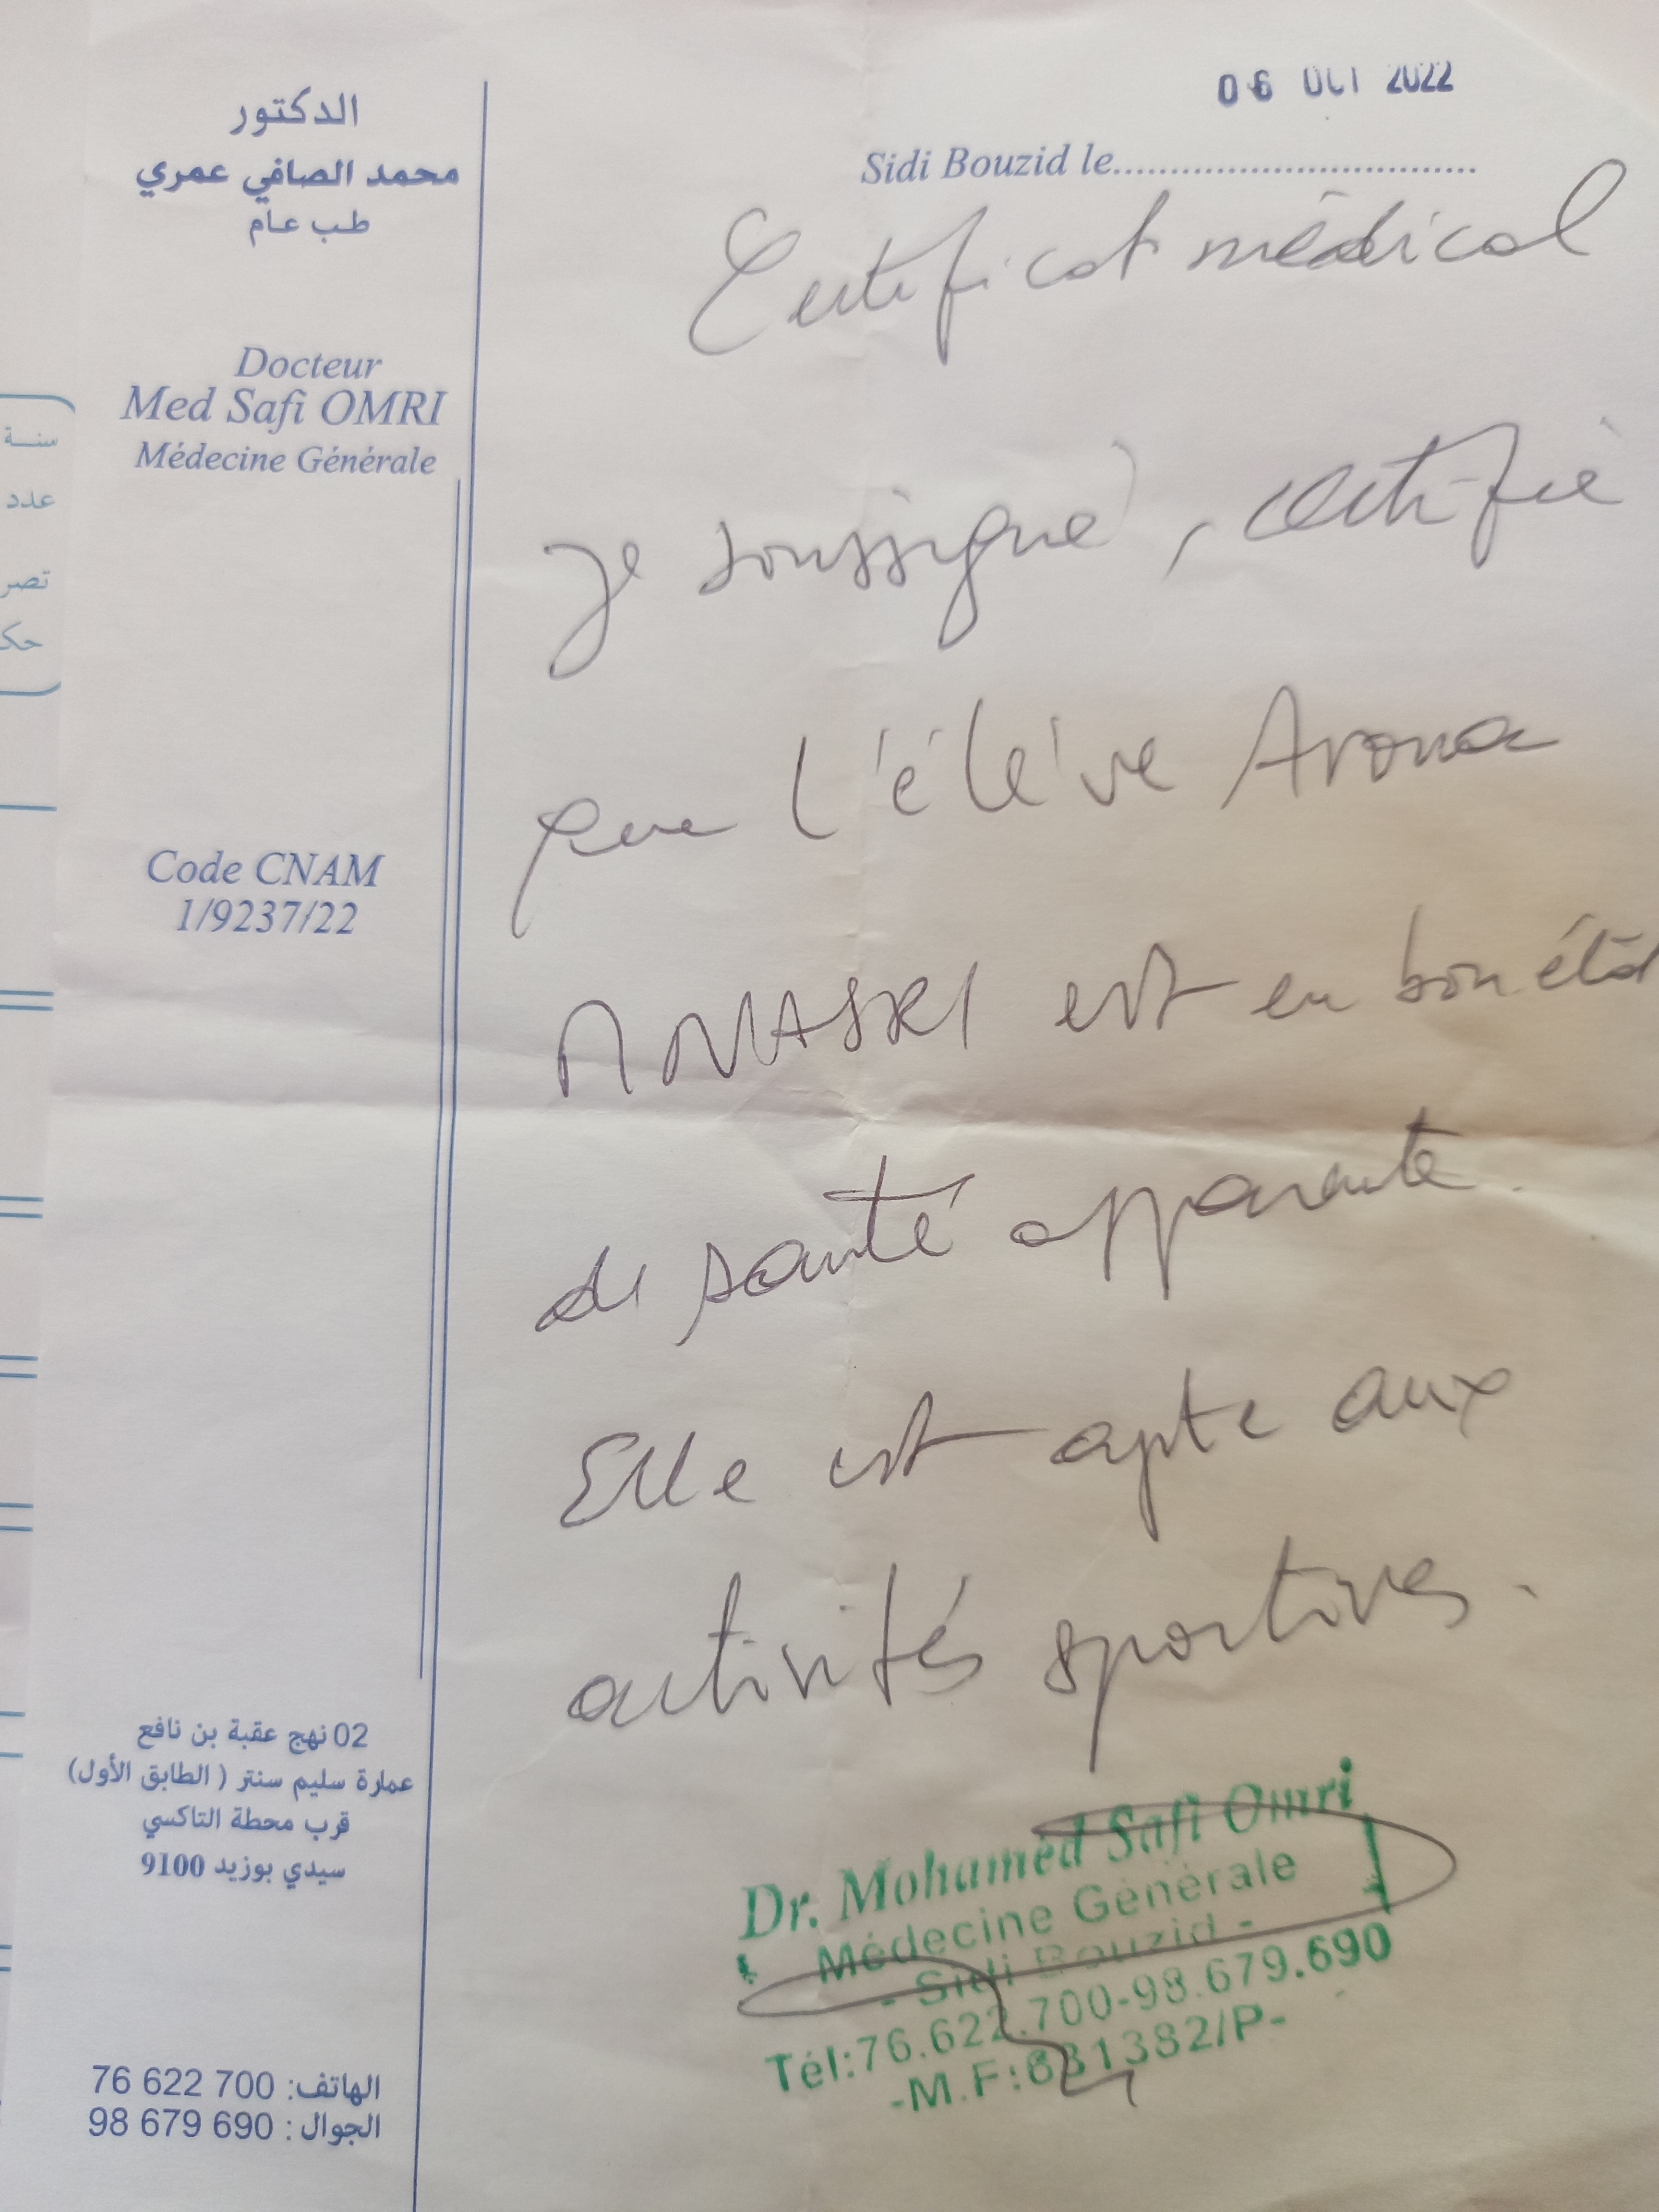 06 OCT 2022
Sidi Bouzid le
الدكتور
محمد الصافي عمري
طب عام
Docteur
Med Safi OMRI
Médecine Générale
Code CNAM
1/9237/22
Certificat médical
Je soussigné, certifie
que l'élève Aroua
MNASRI est en bon état
de santé apparente.
Elle est apte aux
activités sportives.
Dr. Mohamed Safi Omri
Médecine Générale
- Sidi Bouzid -
Tél:76.622.700-98.679.690
-M.F: /P-
02 نهج عقبة بن نافع
عمارة سليم سنتر ( الطابق الأول)
قرب محطة التاكسي
سيدي بوزيد 9100
الهاتف: 76 622 700
الجوال : 98 679 690
سنة
عدد
تصر
حك